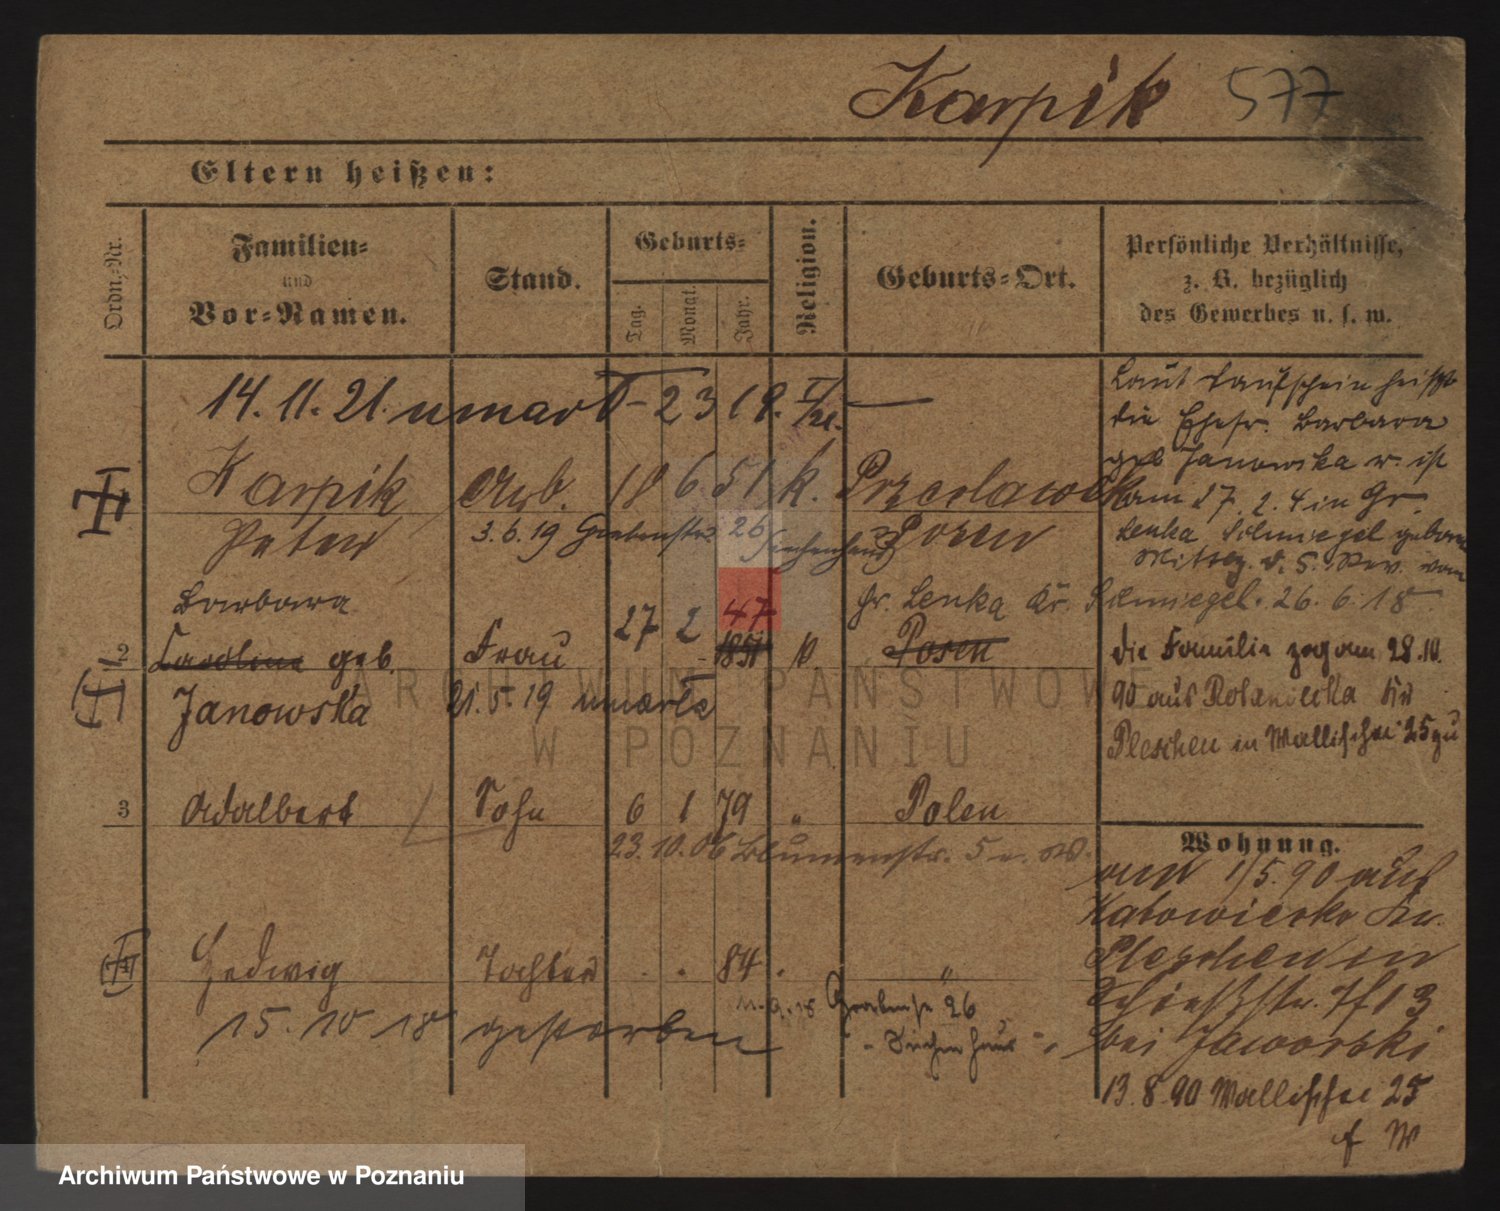 Karpik 577
Eltern heißen:
Ordn.-Nr.
Familien-
und
Vor-Namen.
Stand.
Geburts-
Tag.
Monat.
Jahr.
Religion.
Geburts-Ort.
Persönliche Verhältnisse,
z. B. bezüglich
des Gewerbes u. s. w.
14. 11. 21. umar 23 19.
Laut Taufschein heißt
die Ehefr. Barbara
geb Janowska u. ist
am 27. 2. 4 in Gr.
Lenka Schmiegel geboren
Mitteg. d. 5. Rev. vom
Schmiegel. 26. 6. 18
Karpik Arb. 18 6. 51 k.
Peter 3. 6. 19 Grabenstr 26 Siechenhaus Posen
Barbara
2 Caroline geb. Frau 27 2 47 1851 Gr. Lenka Kr. Posen
Janowska 21. 5. 19 umarła
die Familie zog am 28. 10.
90 aus
Pleschen in Wallischei 25 zu
3 Adalbert Sohn 6 1 79 " Polen
23. 10. 06 Blumenstr. 5 b. W.
Wohnung.
1/5. 90 aus
Katowiecko Kr.
Pleschen in
Schießstr. 7 f 13
bei Jaworski
13. 8. 90 Wallischei 25
f W
4 Hedwig Tochter . . 84 . "
11. 9. 18 Grabenstr 26
- Siechenhaus -
15. 10 18 gestorben
ARCHIWUM PAŃSTWOWE
W POZNANIU
Archiwum Państwowe w Poznaniu